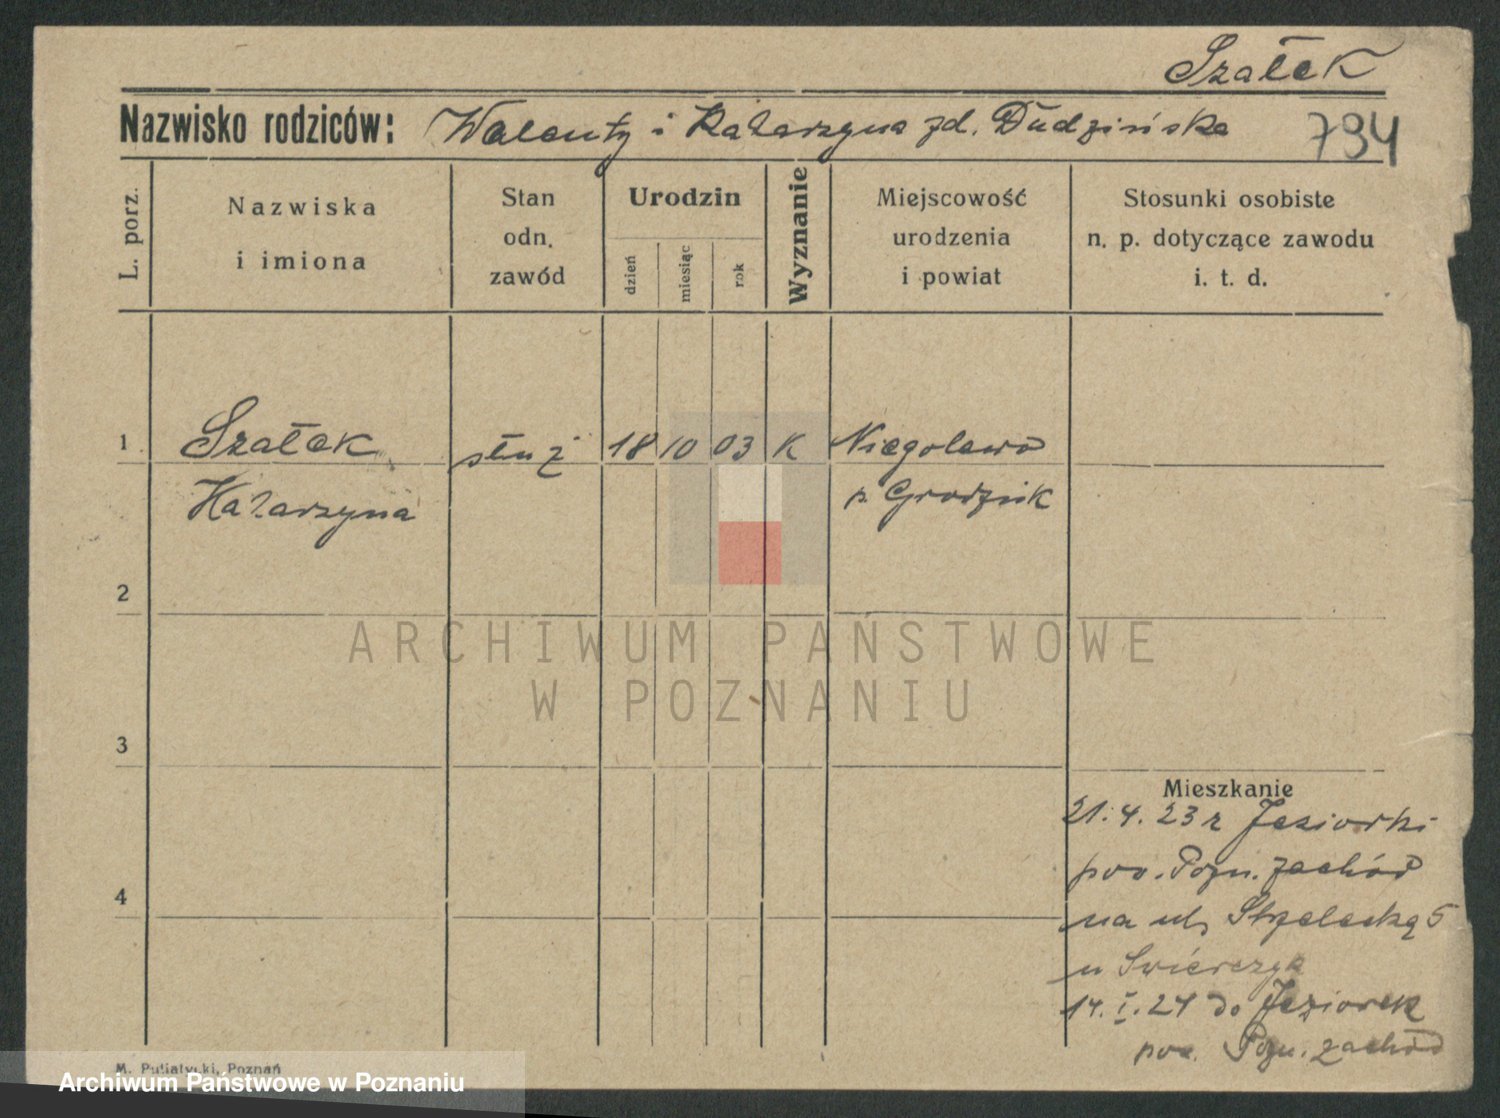 Szałek
Nazwisko rodziców: Walenty i Katarzyna zd. Dudzińska 794
L. porz.
Nazwiska
i imiona
Stan
odn.
zawód
Urodzin
dzień
miesiąc
rok
Wyznanie
Miejscowość
urodzenia
i powiat
Stosunki osobiste
n. p. dotyczące zawodu
i. t. d.
1 Szałek służ 18 10 03 K Niegolewo
Katarzyna p. Grodzisk
2
3
4
Mieszkanie
21.4.23 z Jeziorki
pow. Pozn. zachód
na ul. Strzelecką 5
u Swierczyk
14.I.24 do Jeziorek
pow. Pozn. zachód
M. Putiatycki, Poznań
ARCHIWUM PAŃSTWOWE
W POZNANIU
Archiwum Państwowe w Poznaniu